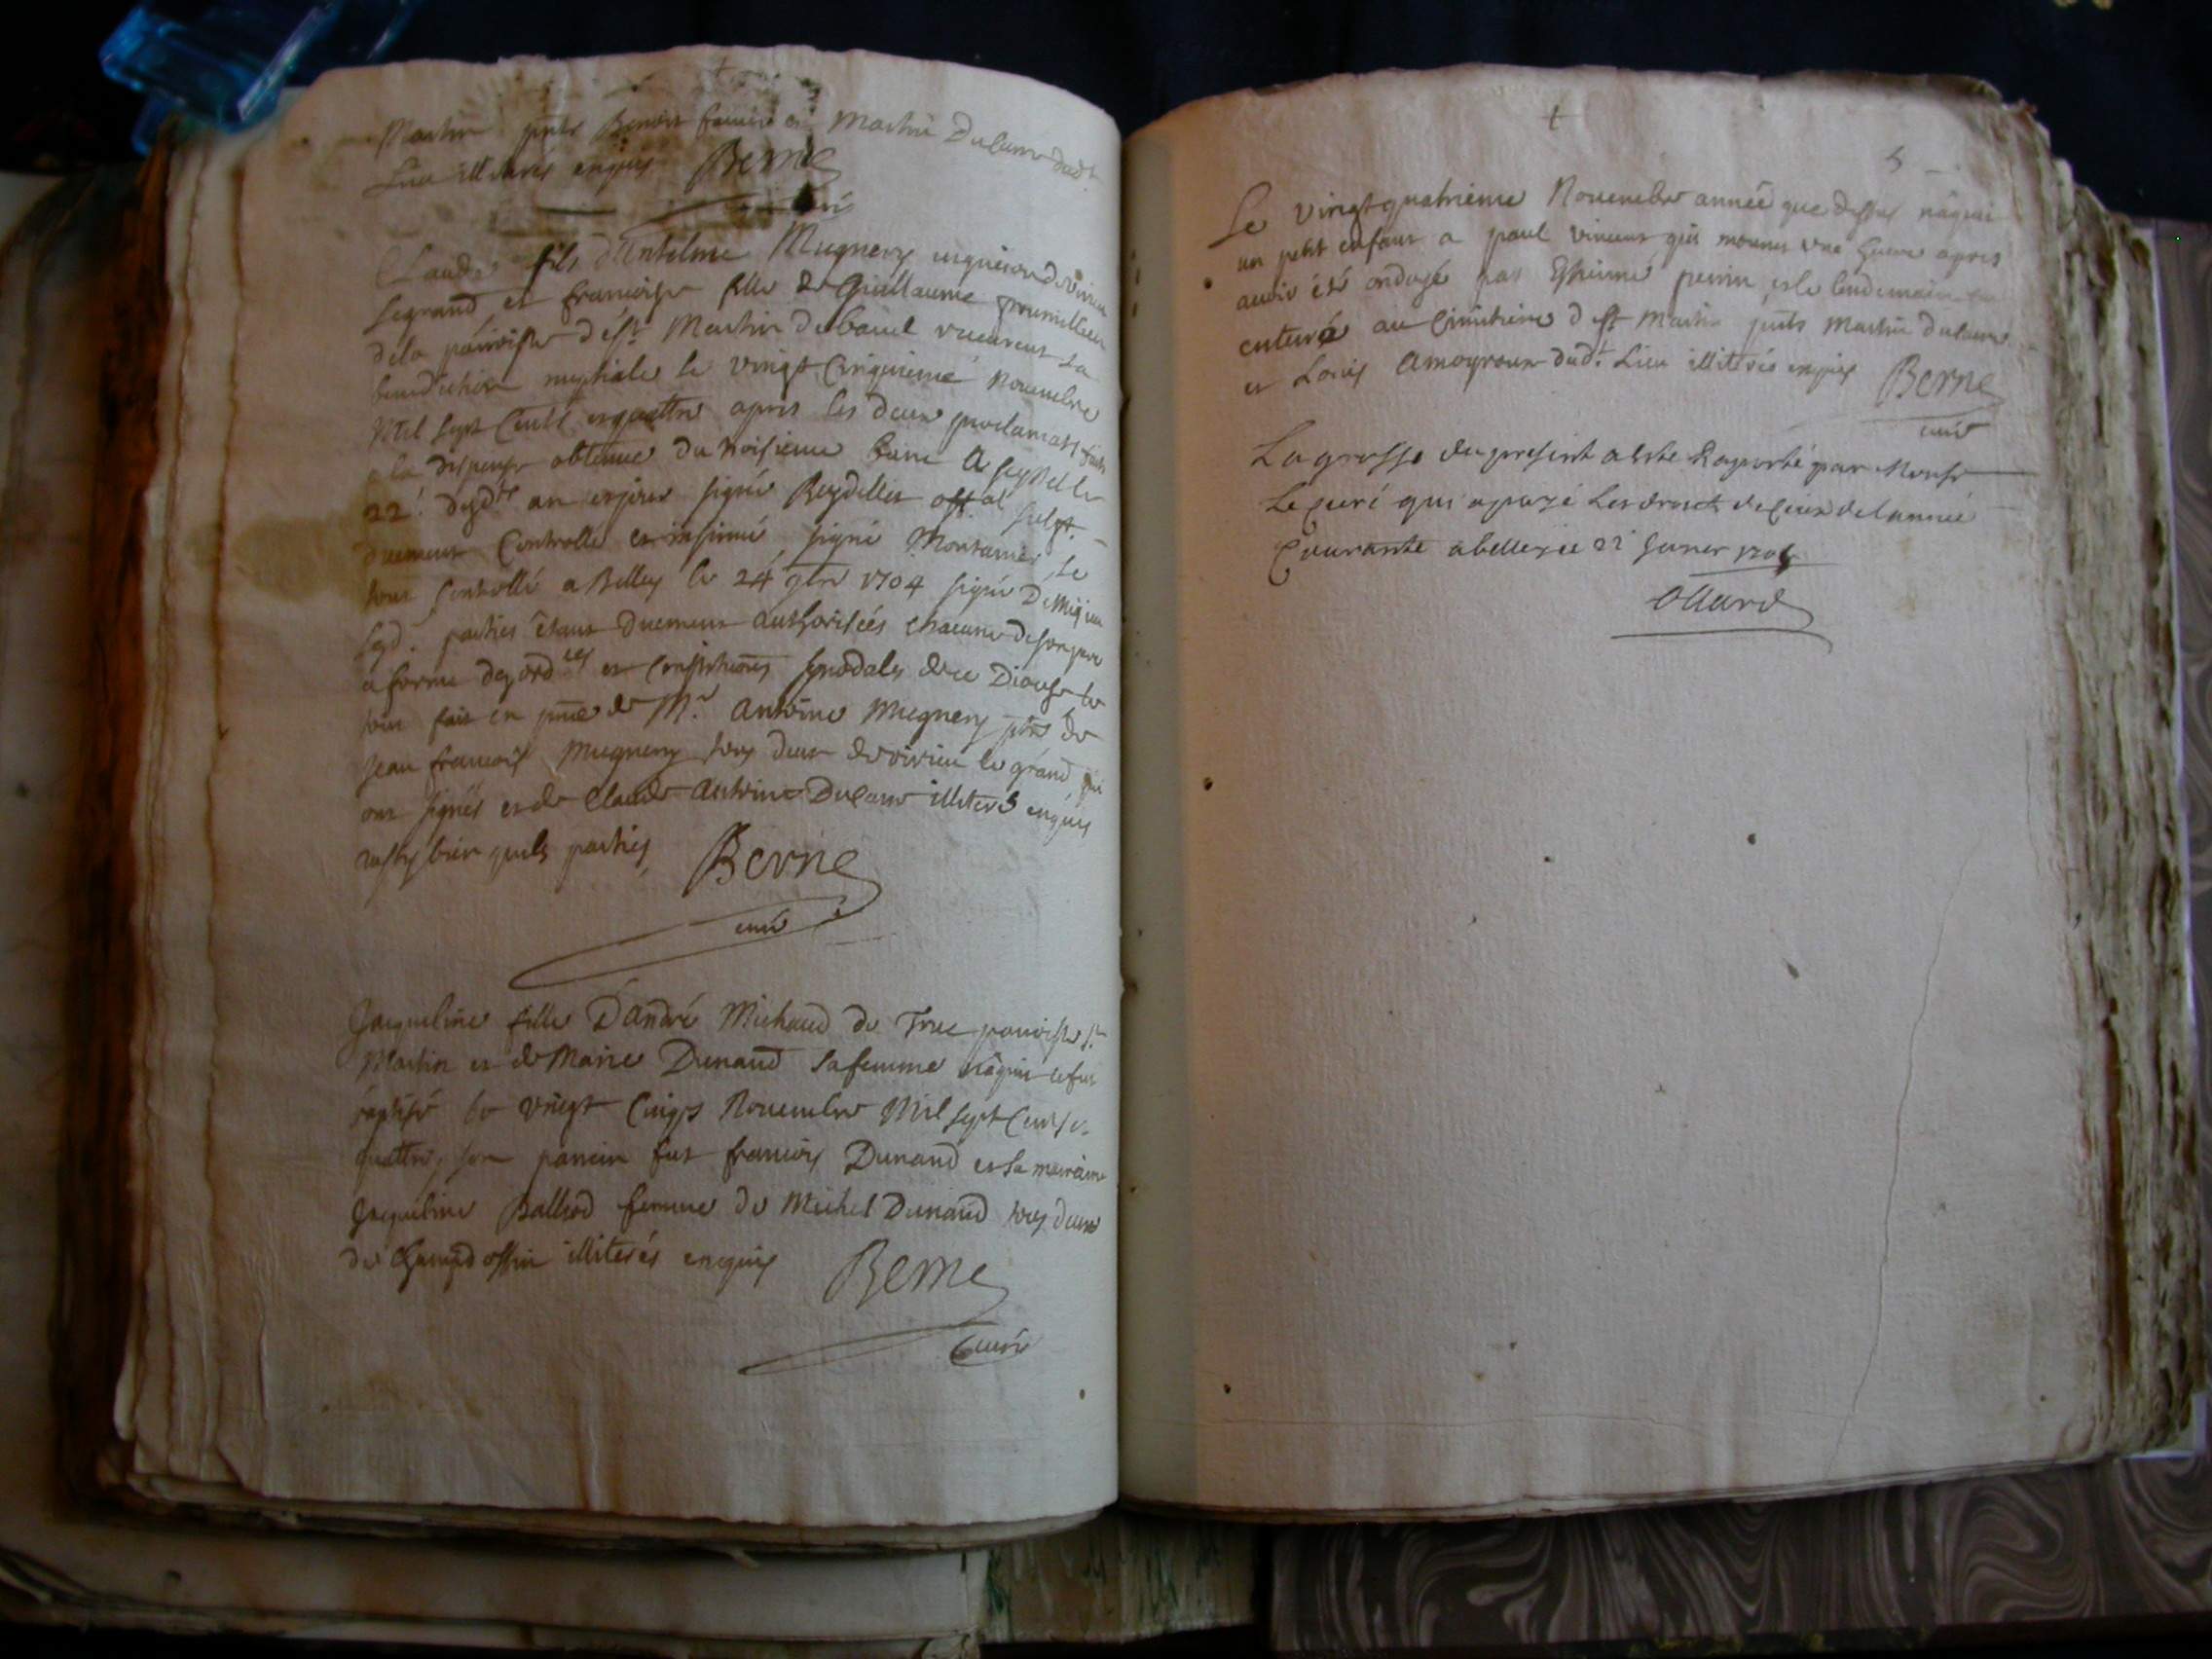 Martin pnts Benoist et Martin Dulaur dudt
Lieu illiterés enquis Berne
curé
Claude fils d'Antelme Mugnery vigneron de virieu
Legrand et francoise fille de Guillaume
dela parroisse de st Martin debavel receurent La
benediction nuptiale le vingt Cinquieme Novembre
Mil sept Cents et quattre apres les deux proclamaons faites
la dispense obtenue du troisieme banc a le
22e desdts an et jour signé Reydellet offal subst.
duement Controllé et insinué signé Montanier, Le
tout Controllé a Belley le 24 9bre 1704 signé
Lesd. parties étant duement authorisées chacune de son pere
a forme des ordces et constitutions synodales de ce Diocese le
tout fait en pnce de Mr. Antoine Mugnery ptre de
Jean francois Mugnery tous deux de virieu le grand, qui
ont signés et de Claude Antoine Dulaur illiterés enquis
aussy bien que les parties, Berne
curé
Jacqueline fille D'andré Michaud de Truc parroisse st
Martin et de Marie Dunand sa femme nâquit et fut
baptisée le vingt Cinqs Novembre Mil sept Cents et
quattre, son parrein fut francois Dunand et sa marraine
Jacqueline Balliod femme de Michel Dunand tous deux
de Champdossin illiterés enquis Berne
Curé
5
Le vingt quatrieme Novembre année que dessus nâquit
un petit enfant a paul vincent qui mourut une heure apres
avoir été ondoyé par Estienne perrin, et le lendemain fut
enterré au Cimitiere de st Martin pnts Martin Dulaur
et Louis Amoyroux dudt. Lieu illiterés enquis Berne
curé
La grosse du present a esté Raporté par Monsr
Le curé qui a payé Les droits de ceux de l'année
Courante a belley ce 22 Janvier 1705
Ollard